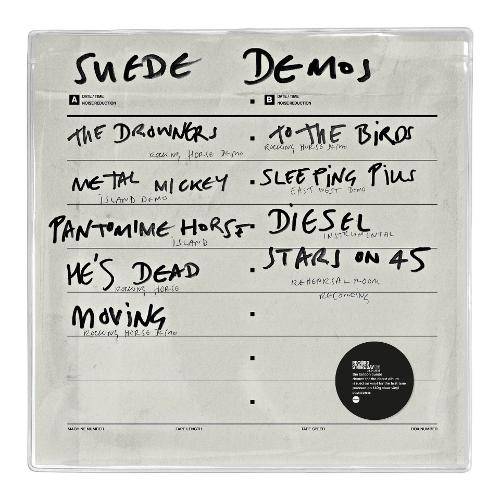 SUEDE DEMOS
A DATE / TIME
NOISE REDUCTION
B DATE / TIME
NOISE REDUCTION
THE DROWNERS
ROCKING HORSE DEMO
METAL MICKEY
ISLAND DEMO
PANTOMIME HORSE
ISLAND
HE'S DEAD
ROCKING HORSE
MOVING
ROCKING HORSE DEMO
TO THE BIRDS
ROCKING HORSE DEMO
SLEEPING PILLS
EAST WEST DEMO
DIESEL
INSTRUMENTAL
STARS ON 45
REHEARSAL ROOM
RECORDING
RECORD
STORE DAY
MACHINE NUMBER TAPE LENGTH TAPE SPEED BOX NUMBER